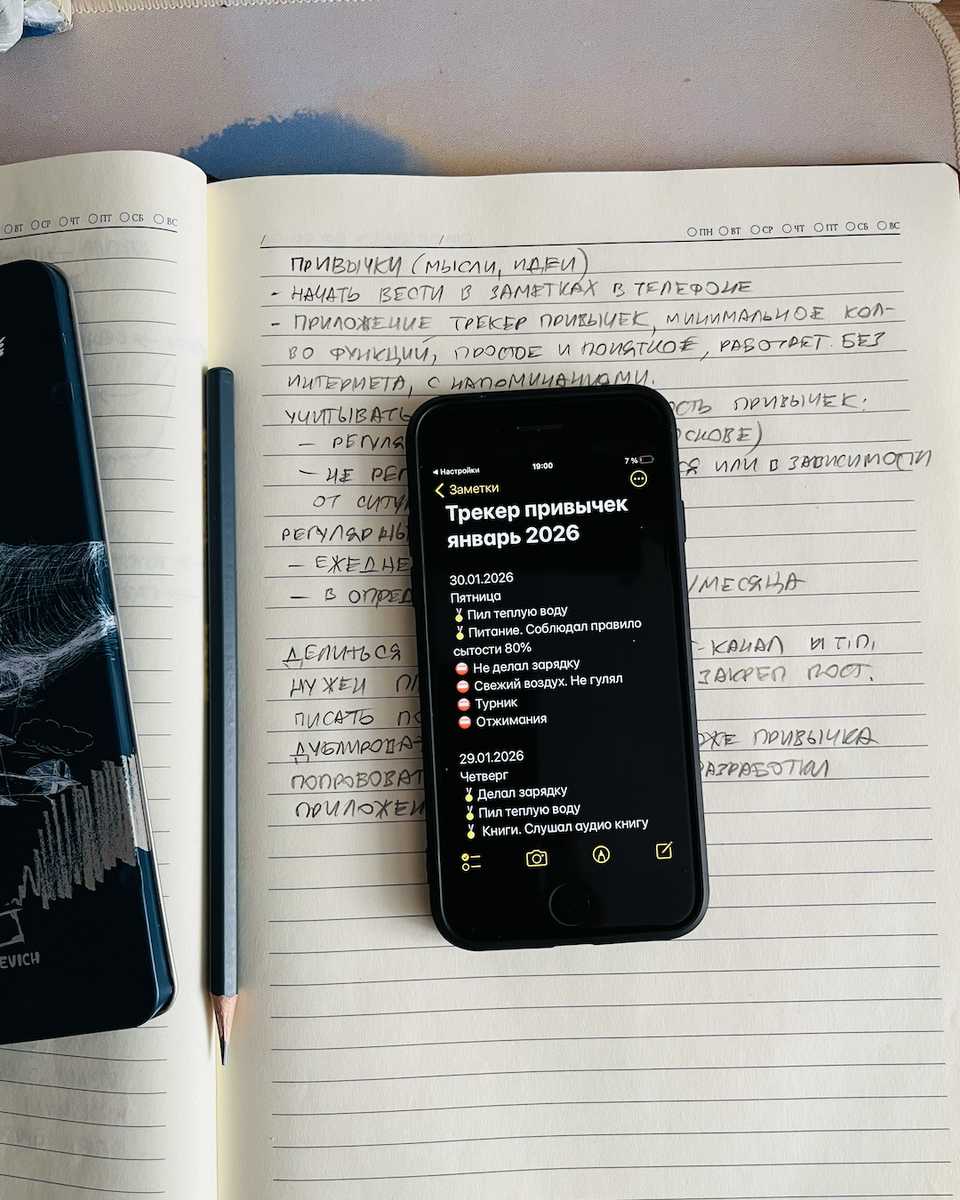 ВТ СР ЧТ ПТ СБ ВС
ПН ВТ СР ЧТ ПТ СБ ВС
ПРИВЫЧКИ (МЫСЛИ, ИДЕИ)
- НАЧАТЬ ВЕСТИ В ЗАМЕТКАХ В ТЕЛЕФОНЕ
- ПРИЛОЖЕНИЕ ТРЕКЕР ПРИВЫЧЕК, МИНИМАЛЬНОЕ КОЛ-
ВО ФУНКЦИЙ, ПРОСТОЕ И ПОНЯТНОЕ, РАБОТАЕТ БЕЗ
ИНТЕРНЕТА, С НАПОМИНАНИЯМИ.
УЧИТЫВАТЬ ОСТЬ ПРИВЫЧЕК:
— РЕГУЛЯ ОСНОВЕ)
— НЕ РЕГ СЯ ИЛИ В ЗАВИСИМОСТИ
ОТ СИТУ
РЕГУЛЯРНЫ
— ЕЖЕДНЕ
— В ОПРЕД /МЕСЯЦА
ДЕЛИТЬСЯ -КАНАЛ И Т.П.
НУЖЕН ЗАКРЕП ПОСТ.
ПИСАТЬ ПО
ДУБЛИРОВАТ ОЖЕ ПРИВЫЧКА
ПОПРОБОВАТ РАЗРАБОТКИ
ПРИЛОЖЕН
Настройки 19:00 7 %
Заметки
Трекер привычек
январь 2026
30.01.2026
Пятница
🎖️Пил теплую воду
🎖️Питание. Соблюдал правило
сытости 80%
⛔ Не делал зарядку
⛔ Свежий воздух. Не гулял
⛔ Турник
⛔ Отжимания
29.01.2026
Четверг
🎖️Делал зарядку
🎖️Пил теплую воду
🎖️ Книги. Слушал аудио книгу
EVICH